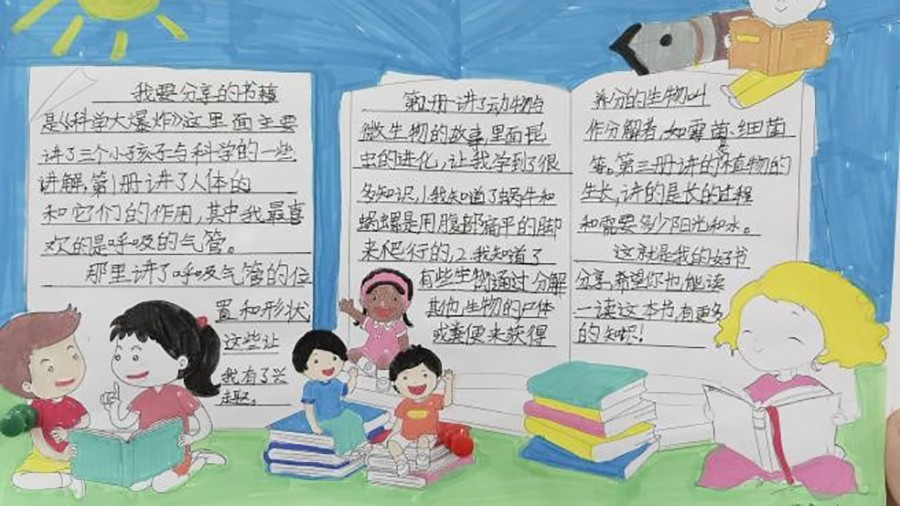 我要分享的书籍
是《科学大爆炸》这里面主要
讲了三个小孩子与科学的一些
讲解,第1册讲了人体的
和它们的作用,其中我最喜
欢的是呼吸的气管。
那里讲了呼吸气管的位
置和形状
这些让
我有了兴
趣。
第2册讲了动物与
微生物的故事,里面昆
虫的进化,让我学到了很
多知识,1我知道了蜗牛和
蛞蝓是用腹部扁平的脚
来爬行的,2.我知道了
有些生物通过分解
其他生物的尸体
或粪便来获得
养分的生物叫
作分解者,如霉菌、细菌
等。第三册讲的是植物的
生长,讲的是长的过程
和需要多少阳光和水。
这就是我的好书
分享,希望你也能读
一读这本书,有更多
的知识!